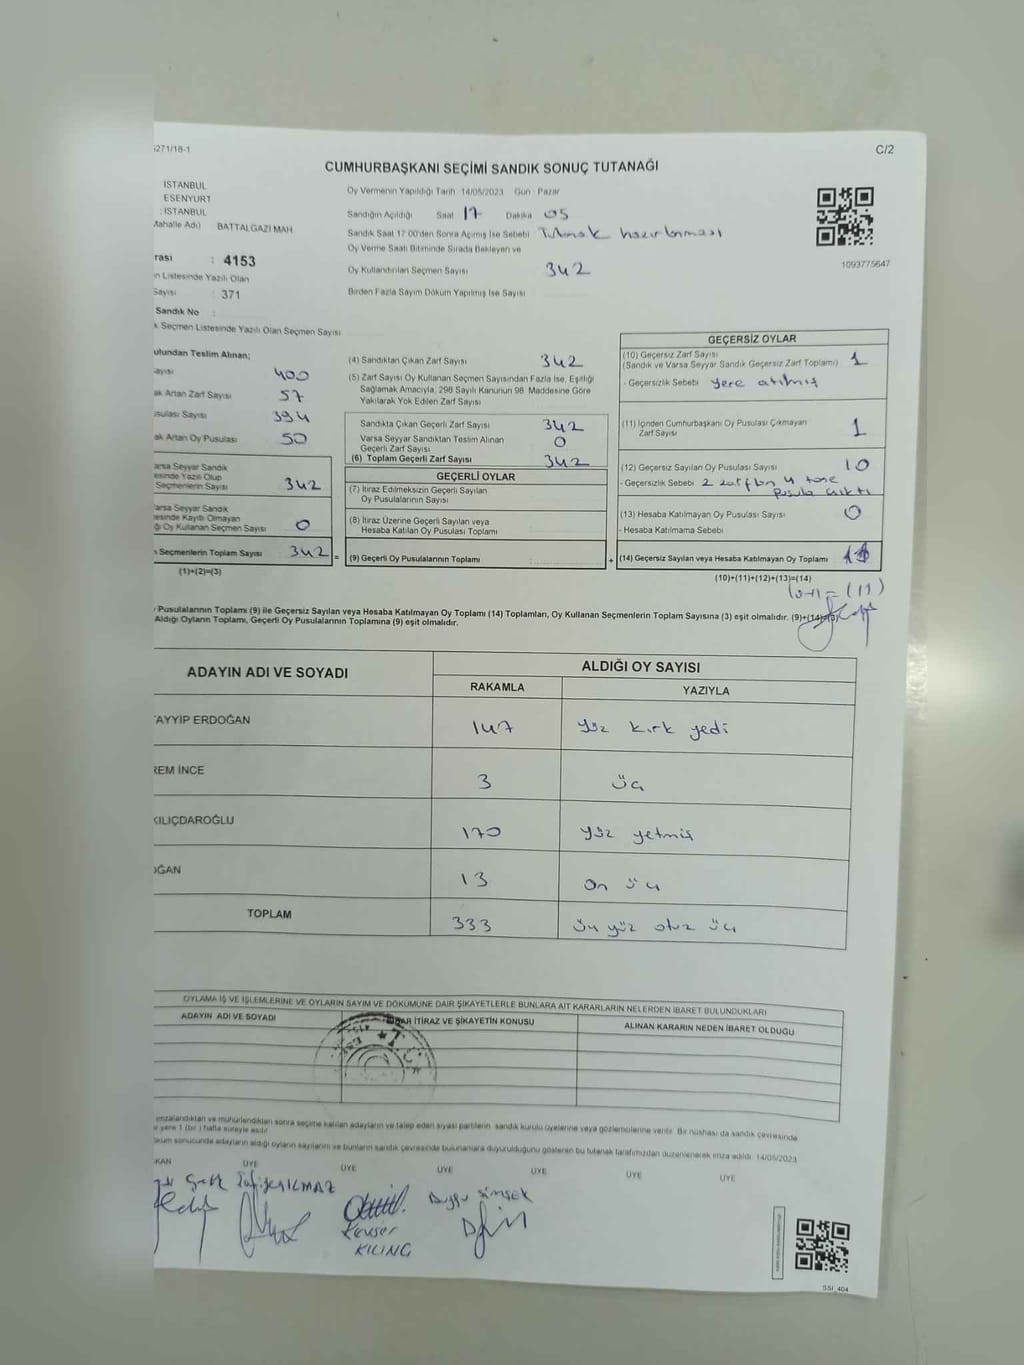 5271/18-1
C/2
CUMHURBAŞKANI SEÇİMİ SANDIK SONUÇ TUTANAĞI
İSTANBUL
ESENYURT
: İSTANBUL
Mahalle Adı) BATTALGAZİ MAH.
rası : 4153
n Listesinde Yazılı Olan
Sayısı : 371
Sandık No :
k Seçmen Listesinde Yazılı Olan Seçmen Sayısı
Oy Vermenin Yapıldığı Tarih 14/05/2023 Gün Pazar
Sandığın Açıldığı Saat 17 Dakika 05
Sandık Saat 17:00'den Sonra Açılmış İse Sebebi Tutanak hazırlanması
Oy Verme Saati Bitiminde Sırada Bekleyen ve
Oy Kullandırılan Seçmen Sayısı 342
Birden Fazla Sayım Döküm Yapılmış İse Sayısı
1093775647
ulundan Teslim Alınan;
ayısı 400
ak Artan Zarf Sayısı 57
usulası Sayısı 394
ak Artan Oy Pusulası 50
arsa Seyyar Sandık
esinde Yazılı Olup
Seçmenlerin Sayısı 342
arsa Seyyar Sandık
esinde Kayıtlı Olmayan
ği Oy Kullanan Seçmen Sayısı 0
n Seçmenlerin Toplam Sayısı 342 =
(1)+(2)=(3)
(4) Sandıktan Çıkan Zarf Sayısı 342
(5) Zarf Sayısı Oy Kullanan Seçmen Sayısından Fazla İse, Eşitliği
Sağlamak Amacıyla, 298 Sayılı Kanunun 98. Maddesine Göre
Yakılarak Yok Edilen Zarf Sayısı
Sandıkta Çıkan Geçerli Zarf Sayısı 342
Varsa Seyyar Sandıktan Teslim Alınan
Geçerli Zarf Sayısı 0
(6) Toplam Geçerli Zarf Sayısı 342
GEÇERLİ OYLAR
(7) İtiraz Edilmeksizin Geçerli Sayılan
Oy Pusulalarının Sayısı
(8) İtiraz Üzerine Geçerli Sayılan veya
Hesaba Katılan Oy Pusulası Toplamı
(9) Geçerli Oy Pusulalarının Toplamı +
GEÇERSİZ OYLAR
(10) Geçersiz Zarf Sayısı
(Sandık ve Varsa Seyyar Sandık Geçersiz Zarf Toplamı) 1
- Geçersizlik Sebebi yere atılmış
(11) İçinden Cumhurbaşkanı Oy Pusulası Çıkmayan
Zarf Sayısı 1
(12) Geçersiz Sayılan Oy Pusulası Sayısı 10
- Geçersizlik Sebebi 2 zarftan 4 tane
pusula çıktı
(13) Hesaba Katılmayan Oy Pusulası Sayısı 0
- Hesaba Katılmama Sebebi
(14) Geçersiz Sayılan veya Hesaba Katılmayan Oy Toplamı
(10)+(11)+(12)+(13)=(14)
(11)
Pusulalarının Toplamı (9) ile Geçersiz Sayılan veya Hesaba Katılmayan Oy Toplamı (14) Toplamları, Oy Kullanan Seçmenlerin Toplam Sayısına (3) eşit olmalıdır. (9)+(14)=(3)
Aldığı Oyların Toplamı, Geçerli Oy Pusulalarının Toplamına (9) eşit olmalıdır.
ADAYIN ADI VE SOYADI ALDIĞI OY SAYISI
RAKAMLA YAZIYLA
TAYYİP ERDOĞAN 147 Yüz kırk yedi
REM İNCE 3 üç
KILIÇDAROĞLU 170 yüz yetmiş
OĞAN 13 On üç
TOPLAM 333 üç yüz otuz üç
OYLAMA İŞ VE İŞLEMLERİNE VE OYLARIN SAYIM VE DÖKÜMÜNE DAİR ŞİKAYETLERLE BUNLARA AİT KARARLARIN NELERDEN İBARET BULUNDUKLARI
ADAYIN ADI VE SOYADI İTİRAZ VE ŞİKAYETİN KONUSU ALINAN KARARIN NEDEN İBARET OLDUĞU
T.C.
imzalandıktan ve mühürlendikten sonra seçime katılan adayların ve talep eden siyasi partilerin sandık kurulu üyelerine veya gözlemcilerine verilir. Bir nüshası da sandık çevresinde
yere 1 (bir) hafta süreyle asılır.
küm sonucunda adayların aldığı oyların sayılarını ve bunların sandık çevresinde bulunanlara duyurulduğunu gösteren bu tutanak tarafımızdan düzenlenerek imza edildi. 14/05/2023
KAN ÜYE ÜYE ÜYE ÜYE ÜYE ÜYE
Duygu Şimşek
Kevser
KILINÇ
SSİ_404